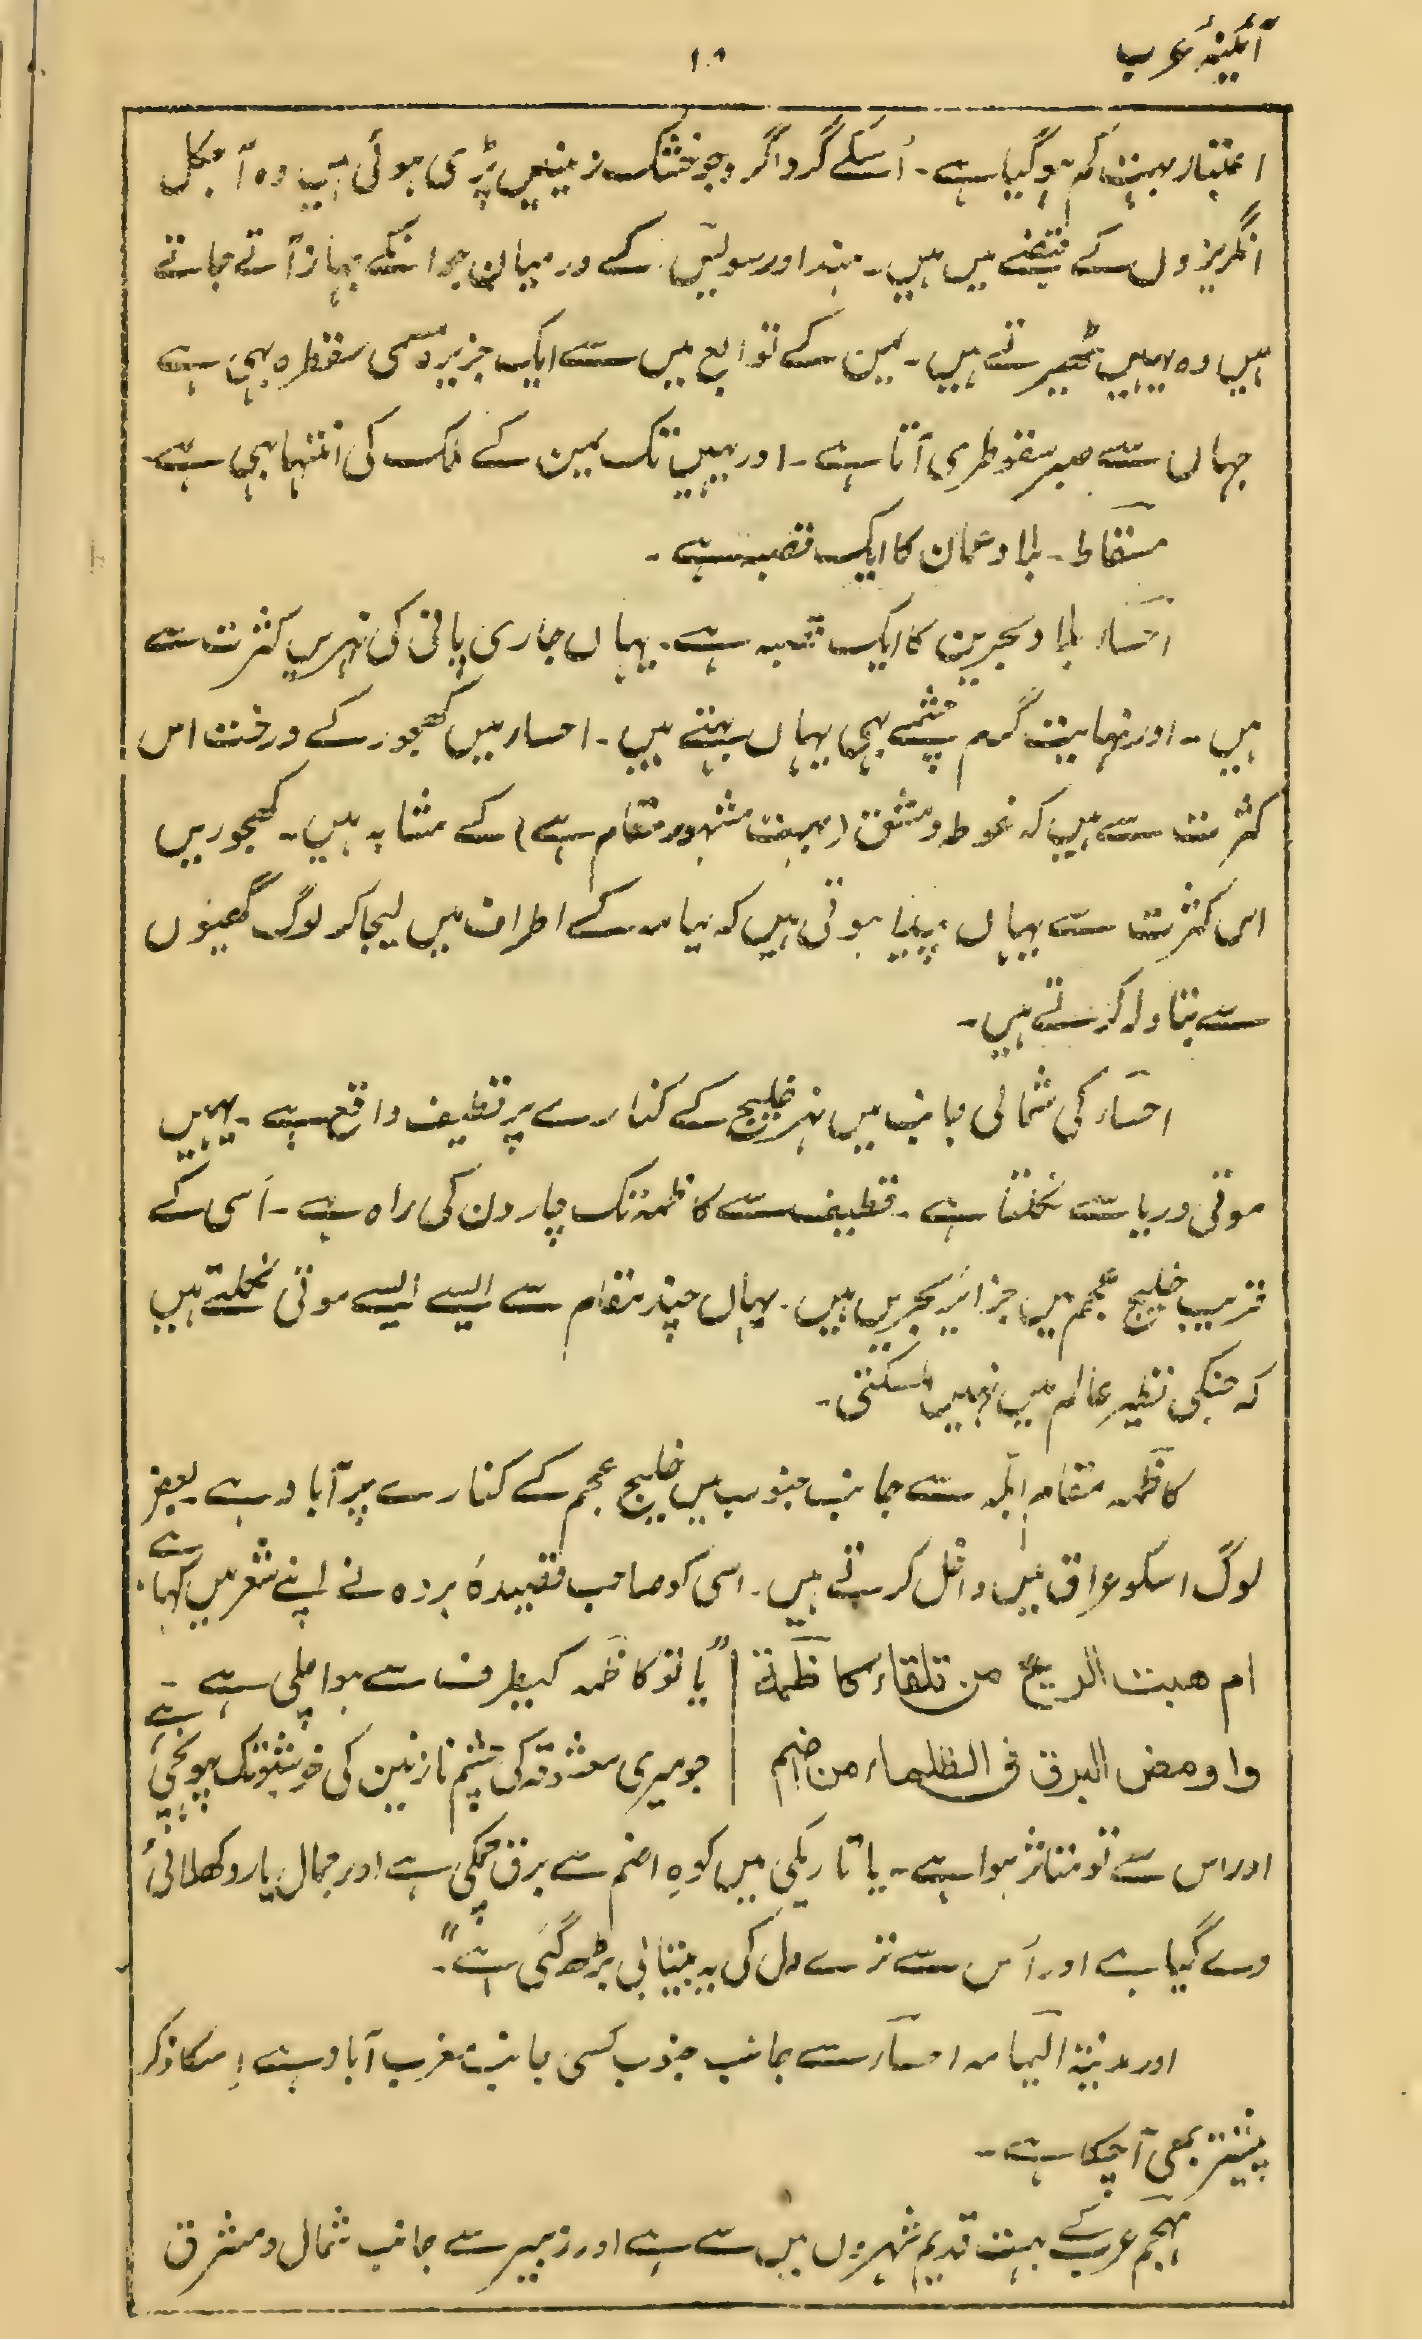 آئینۂ عرب
۱۰۹
اعتبار بہت کم ہوگیا ہے۔ اُسکے گرداگرد جو خشک زمینیں پڑی ہوئی ہیں وہ آجکل
انگریزوں کے قبضے میں ہیں۔ ہند اور سویس کے درمیان جو انکے جہاز آتے جاتے
ہیں وہ یہیں ٹھیرتے ہیں۔ یمن کے توابع میں سے ایک جزیرہ مسمی سقطرہ بہی ہے
جہاں سے صبر سقوطری آتا ہے۔ اور یہیں تک یمن کے ملک کی انتہا بہی ہے۔
مسقاط۔ بلاد عمان کا ایک قصبہ ہے۔
احساء بلاد بحرین کا ایک قصبہ ہے۔ یہاں جاری پانی کی نہریں کثرت سے
ہیں۔ اور نہایت گرم چشمے بہی یہاں بہتے ہیں۔ احساء میں کھجور کے درخت اس
کثرت سے ہیں کہ غوطہ دمشق (بہت مشہور مقام ہے) کے مشابہ ہیں۔ کھجوریں
اس کثرت سے یہاں پیدا ہوتی ہیں کہ یمامہ کے اطراف میں لیجاکر لوگ گیہوں
سے تبادلہ کرتے ہیں۔
احساء کی شمالی جانب میں نہر خلیج کے کنارے پر قطیف واقع ہے۔ یہیں
موتی دریا سے نکلتا ہے۔ قطیف سے کاظمہ تک چار دن کی راہ ہے۔ اُسی کے
قریب خلیج عجم میں جزائر بحرین ہیں۔ یہاں چند مقام سے ایسے ایسے موتی نکلتے ہیں
کہ جنکی نظیر عالم میں نہیں ملسکتی۔
کاظمہ مقام ابلہ سے جانب جنوب میں خلیج عجم کے کنارے پر آباد ہے۔ بعض
لوگ اسکو عراق میں داخل کرتے ہیں۔ اسی کو صاحب قصیدۂ بردہ نے اپنے شعر میں کہا ہے
ام ھبت الریح من تلقاء کاظمۃ | ”یا تو کاظمہ کیطرف سے ہوا چلی ہے۔
وا ومض البرق فی الظلماء من اضم | جو میری معشوقہ کی چشم نازنین کی خوشبو تک پہونچی ہے
اور اس سے تو متاثر ہوا ہے۔ یا تاریکی میں کوہِ اضم سے برق چمکی ہے اور جمال یار دکھلائی
دے گیا ہے اور اُس سے ترے دل کی بیتابی بڑھ گئی ہے“۔
اور مدینۃ الیمامہ احساء سے جانب جنوب کسی جانب مغرب آباد ہے اِسکا ذکر
پیشتر بھی آچکا ہے۔
ہجم عرب کے بہت قدیم شہروں میں سے ہے اور زبیر سے جانب شمال و مشرق